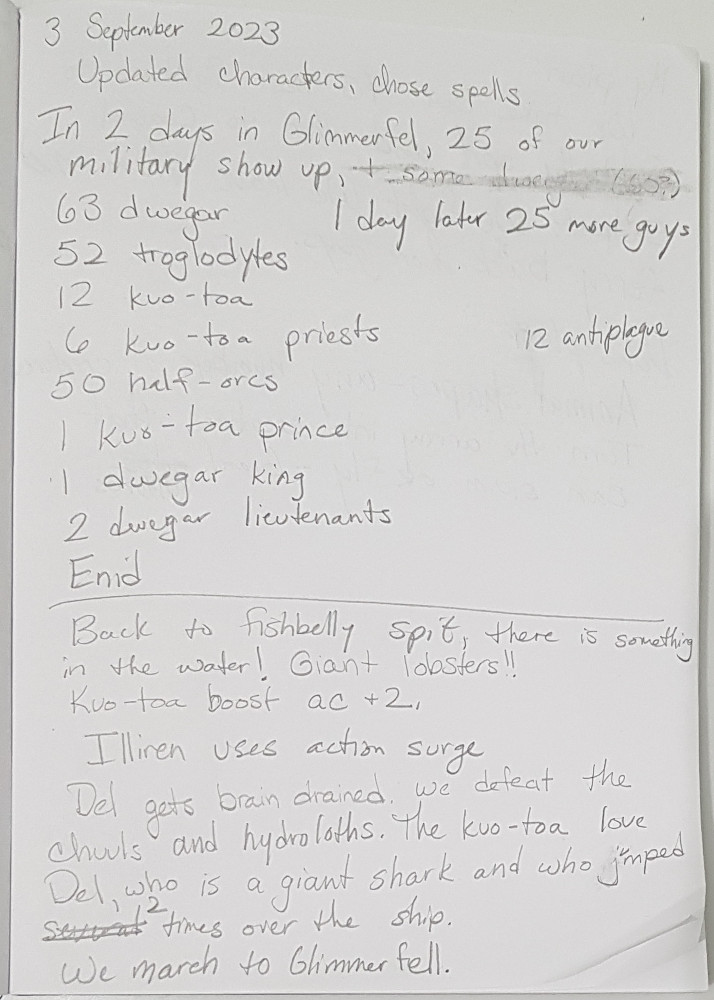 3 September 2023
Updated characters, chose spells
In 2 days in Glimmerfel, 25 of our
military show up, + some (60?)
63 dwegar 1 day later 25 more guys
52 troglodytes
12 kuo-toa
6 kuo-toa priests 12 antiplague
50 half-orcs
1 kuo-toa prince
1 dwegar king
2 dwegar lieutenants
Enid
Back to fishbelly spit, there is something
in the water! Giant lobsters!!
Kuo-toa boost ac +2,
Illiren uses action surge
Del gets brain drained. we defeat the
chuuls and hydroloths. The kuo-toa love
Del, who is a giant shark and who jumped
several 2 times over the ship.
We march to Glimmerfell.